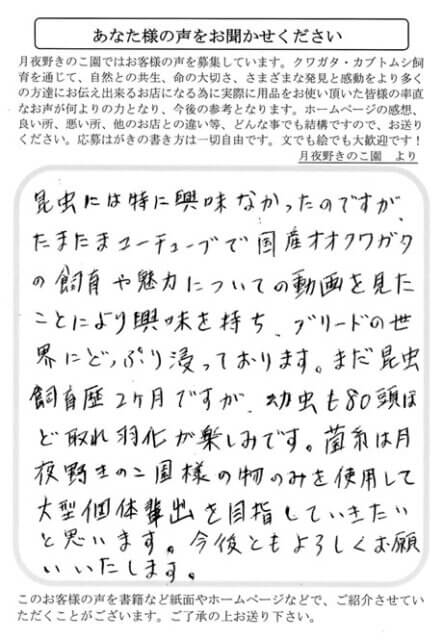 あなた様の声をお聞かせください
月夜野きのこ園ではお客様の声を募集しています。クワガタ・カブトムシ飼
育を通じて、自然との共生、命の大切さ、さまざまな発見と感動をより多く
の方達にお伝え出来るお店になる為に実際に用品をお使い頂いた皆様の率直
なお声が何よりの力となり、今後の参考となります。ホームページの感想、
良い所、悪い所、他のお店との違い等、どんな事でも結構ですので、お送り
ください。応募はがきの書き方は一切自由です。文でも絵でも大歓迎です！
月夜野きのこ園　より
昆虫には特に興味なかったのですが、
たまたまユーチューブで国産オオクワガタ
の飼育や魅力についての動画を見た
ことにより興味を持ち、ブリードの世
界にどっぷり浸っております。まだ昆虫
飼育歴2ヶ月ですが、幼虫も80頭ほ
ど取れ羽化が楽しみです。菌糸は月
夜野きのこ園様の物のみを使用して
大型個体輩出を目指していきたい
と思います。今後ともよろしくお願
いいたします。
このお客様の声を書籍など紙面やホームページなどで、ご紹介させてい
ただくことがございます。ご了承の上お送り下さい。